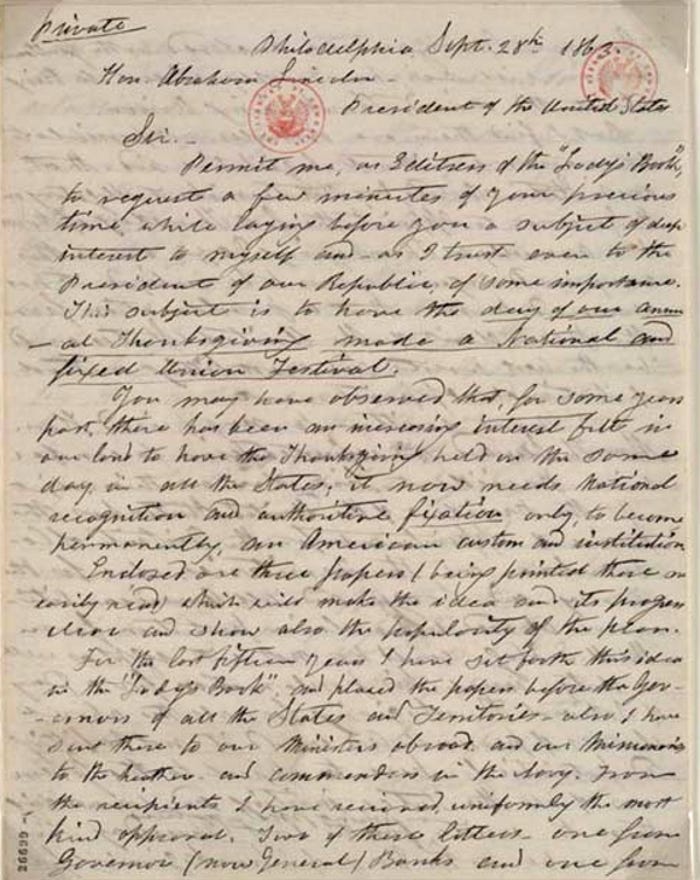 Private
Philadelphia, Sept. 28th 1863.
Hon. Abraham Lincoln -
President of the United States
Sir. -
Permit me, as Editress of the "Lady's Book",
to request a few minutes of your precious
time, while laying before you a subject of deep
interest to myself and - as I trust - even to the
President of our Republic, of some importance.
This subject is to have the day of our annu
- al Thanksgiving made a National and
fixed Union Festival.
You may have observed that, for some years
past, there has been an increasing interest felt in
our land to have the Thanksgiving held on the same
day, in all the States; it now needs National
recognition and authoritive fixation, only, to become
permanently, an American custom and institution.
Enclosed are three papers (being printed these are
easily read) which will make the idea and its progress
clear and show also the popularity of the plan.
For the last fifteen years I have set forth this idea
in the "Lady's Book", and placed the papers before the Gov-
- ernors of all the States and Territories - also I have
sent these to our Ministers abroad, and our Missionaries
to the heathen - and commanders in the Navy. From
the recipients I have received, uniformly the most
kind approval. Two of these letters, one from
Governor (now General) Banks and one from
26699